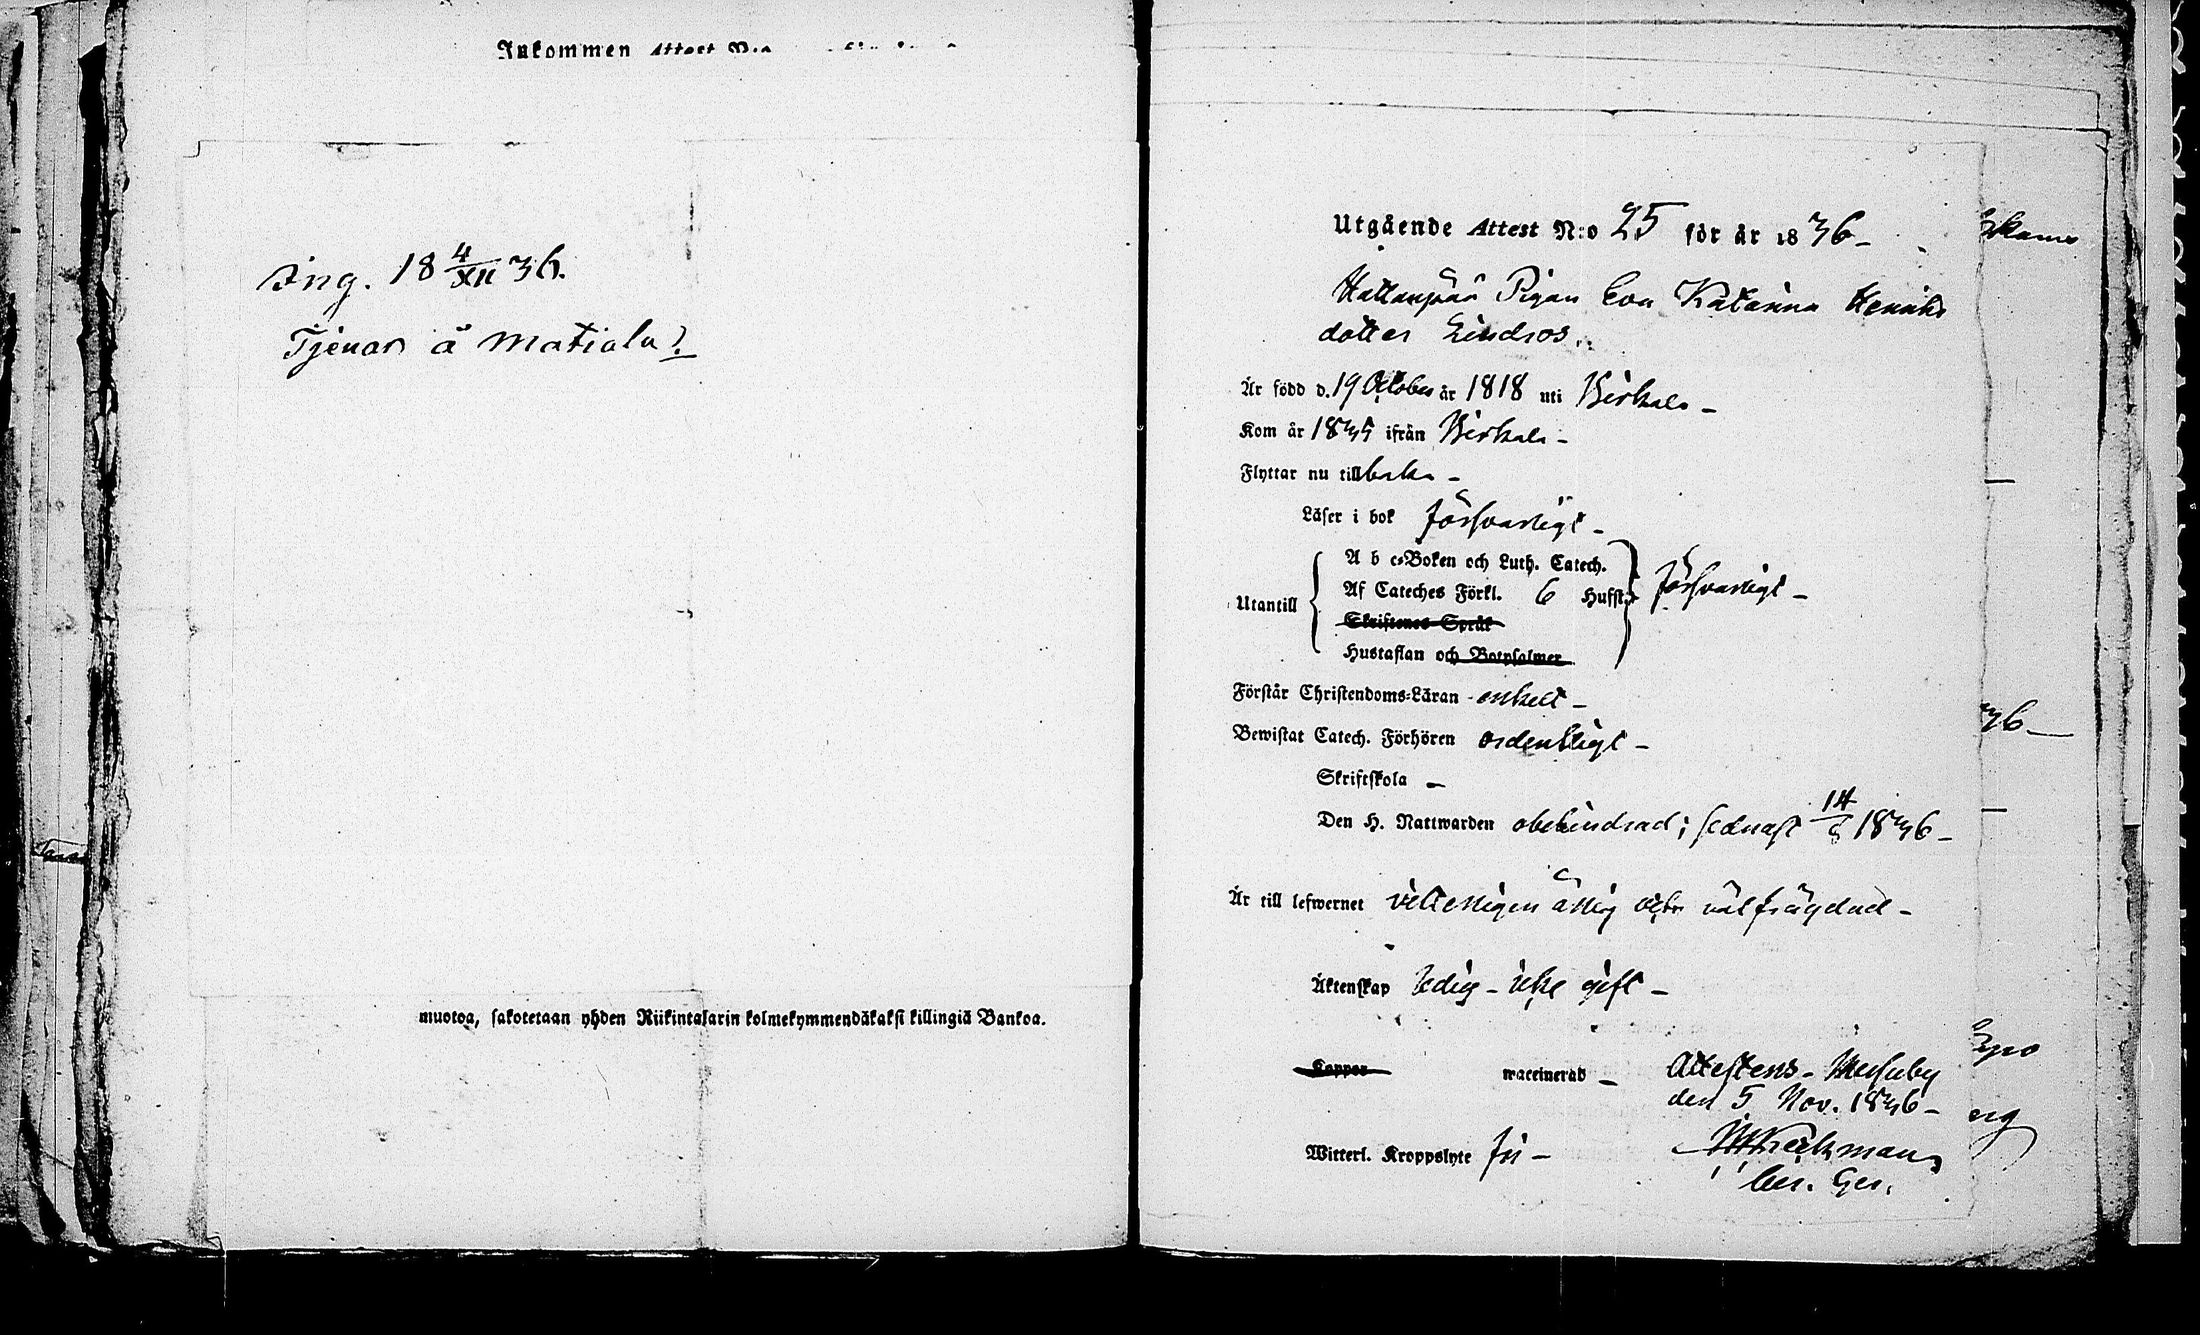 Inkommen Attest N:o
Ing. 18 4/XII 36.
Tjenar å Matiala).
muotoa, sakotetaan yhden Riikintalarin kolmekymmendäkaksi killingiä Bankoa.
Utgående Attest N:o 25 för år 1836-
Pigan Eva Katarina Henriks
dotter Lindros.
Är född d. 19 October år 1818 uti Birkala -
Kom år 1835 ifrån Birkala -
Flyttar nu tillbaka -
Läser i bok försvarligt -
Utantill
A b c-Boken och Luth. Catech.
Af Cateches Förkl. 6 Hufst. försvarligt -
Skriftenes Språk
Hustaflan och Botpsalmer
Förstår Christendoms-Läran enkelt -
Bewistat Catech. Förhören ordentligt -
Skriftskola -
Den H. Nattwarden obehindrad; sednast 1836 -
Är till lefwernet välfrägdad -
Äktenskap ledig - icke gift -
Koppor waccinerad - Attesterns - Messuby
den 5 Nov. 1836 -
Witterl. Kroppslyte fri -
36 -